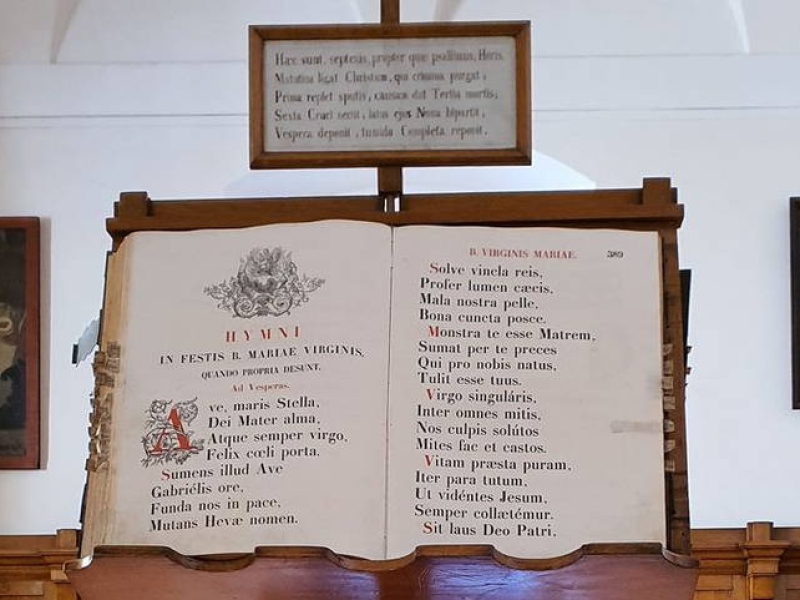 Hæc sunt, septenis, propter quæ psallimus, Horis.
Matutina ligat Christum, qui crimina purgat,
Prima replet sputis, causam dat Tertia mortis;
Sexta Cruci nectit, latus ejus Nona bipartit,
Vespera deponit, tumulo Completa reponit.
HYMNI
IN FESTIS B. MARIAE VIRGINIS,
QUANDO PROPRIA DESUNT.
Ad Vesperas.
Ave, maris Stella,
Dei Mater alma,
Atque semper virgo,
Felix cœli porta.
Sumens illud Ave
Gabriélis ore,
Funda nos in pace,
Mutans Hevæ nomen.
B. VIRGINIS MARIAE. 389
Solve vincla reis,
Profer lumen cæcis,
Mala nostra pelle,
Bona cuncta posce.
Monstra te esse Matrem,
Sumat per te preces
Qui pro nobis natus,
Tulit esse tuus.
Virgo singuláris,
Inter omnes mitis,
Nos culpis solútos
Mites fac et castos.
Vitam præsta puram,
Iter para tutum,
Ut vidéntes Jesum,
Semper collætémur.
Sit laus Deo Patri,